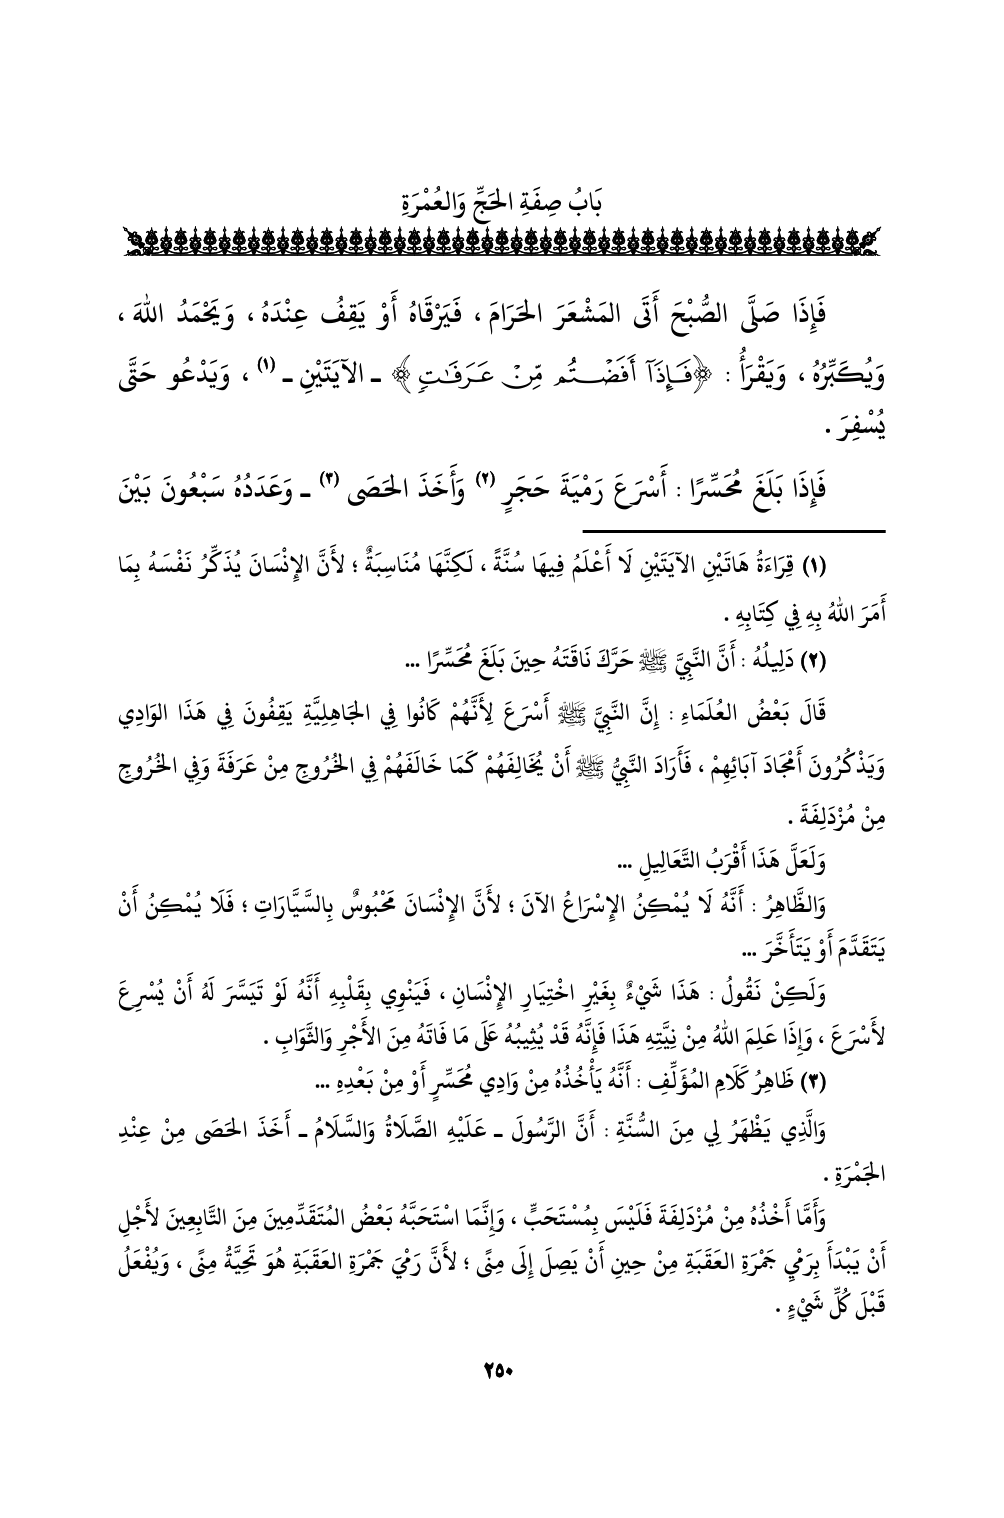 بَابُ صِفَةِ الحَجِّ وَالعُمْرَةِ
فَإِذَا صَلَّى الصُّبْحَ أَتَى المَشْعَرَ الحَرَامَ ، فَيَرْقَاهُ أَوْ يَقِفُ عِنْدَهُ ، وَيَحْمَدُ اللهَ ،
وَيُكَبِّرُهُ ، وَيَقْرَأُ : ﴿فَإِذَآ أَفَضْتُم مِّنْ عَرَفَٰتٍ﴾ ـ الآيَتَيْنِ ـ (١) ، وَيَدْعُو حَتَّى
يُسْفِرَ .
فَإِذَا بَلَغَ مُحَسِّرًا : أَسْرَعَ رَمْيَةَ حَجَرٍ (٢) وَأَخَذَ الحَصَى (٣) ـ وَعَدَدُهُ سَبْعُونَ بَيْنَ
(١) قِرَاءَةُ هَاتَيْنِ الآيَتَيْنِ لَا أَعْلَمُ فِيهَا سُنَّةً ، لَكِنَّهَا مُنَاسِبَةٌ ؛ لأَنَّ الإِنْسَانَ يُذَكِّرُ نَفْسَهُ بِمَا
أَمَرَ اللهُ بِهِ فِي كِتَابِهِ .
(٢) دَلِيلُهُ : أَنَّ النَّبِيَّ ﷺ حَرَّكَ نَاقَتَهُ حِينَ بَلَغَ مُحَسِّرًا ...
قَالَ بَعْضُ العُلَمَاءِ : إِنَّ النَّبِيَّ ﷺ أَسْرَعَ لِأَنَّهُمْ كَانُوا فِي الجَاهِلِيَّةِ يَقِفُونَ فِي هَذَا الوَادِي
وَيَذْكُرُونَ أَمْجَادَ آبَائِهِمْ ، فَأَرَادَ النَّبِيُّ ﷺ أَنْ يُخَالِفَهُمْ كَمَا خَالَفَهُمْ فِي الخُرُوجِ مِنْ عَرَفَةَ وَفِي الخُرُوجِ
مِنْ مُزْدَلِفَةَ .
وَلَعَلَّ هَذَا أَقْرَبُ التَّعَالِيلِ ...
وَالظَّاهِرُ : أَنَّهُ لَا يُمْكِنُ الإِسْرَاعُ الآنَ ؛ لأَنَّ الإِنْسَانَ مَحْبُوسٌ بِالسَّيَّارَاتِ ؛ فَلَا يُمْكِنُ أَنْ
يَتَقَدَّمَ أَوْ يَتَأَخَّرَ ...
وَلَكِنْ نَقُولُ : هَذَا شَيْءٌ بِغَيْرِ اخْتِيَارِ الإِنْسَانِ ، فَيَنْوِي بِقَلْبِهِ أَنَّهُ لَوْ تَيَسَّرَ لَهُ أَنْ يُسْرِعَ
لأَسْرَعَ ، وَإِذَا عَلِمَ اللهُ مِنْ نِيَّتِهِ هَذَا فَإِنَّهُ قَدْ يُثِيبُهُ عَلَى مَا فَاتَهُ مِنَ الأَجْرِ وَالثَّوَابِ .
(٣) ظَاهِرُ كَلَامِ المُؤَلِّفِ : أَنَّهُ يَأْخُذُهُ مِنْ وَادِي مُحَسِّرٍ أَوْ مِنْ بَعْدِهِ ...
وَالَّذِي يَظْهَرُ لِي مِنَ السُّنَّةِ : أَنَّ الرَّسُولَ ـ عَلَيْهِ الصَّلَاةُ وَالسَّلَامُ ـ أَخَذَ الحَصَى مِنْ عِنْدِ
الجَمْرَةِ .
وَأَمَّا أَخْذُهُ مِنْ مُزْدَلِفَةَ فَلَيْسَ بِمُسْتَحَبٍّ ، وَإِنَّمَا اسْتَحَبَّهُ بَعْضُ المُتَقَدِّمِينَ مِنَ التَّابِعِينَ لأَجْلِ
أَنْ يَبْدَأَ بِرَمْيِ جَمْرَةِ العَقَبَةِ مِنْ حِينِ أَنْ يَصِلَ إِلَى مِنًى ؛ لأَنَّ رَمْيَ جَمْرَةِ العَقَبَةِ هُوَ تَحِيَّةُ مِنًى ، وَيُفْعَلُ
قَبْلَ كُلِّ شَيْءٍ .
٢٥٠